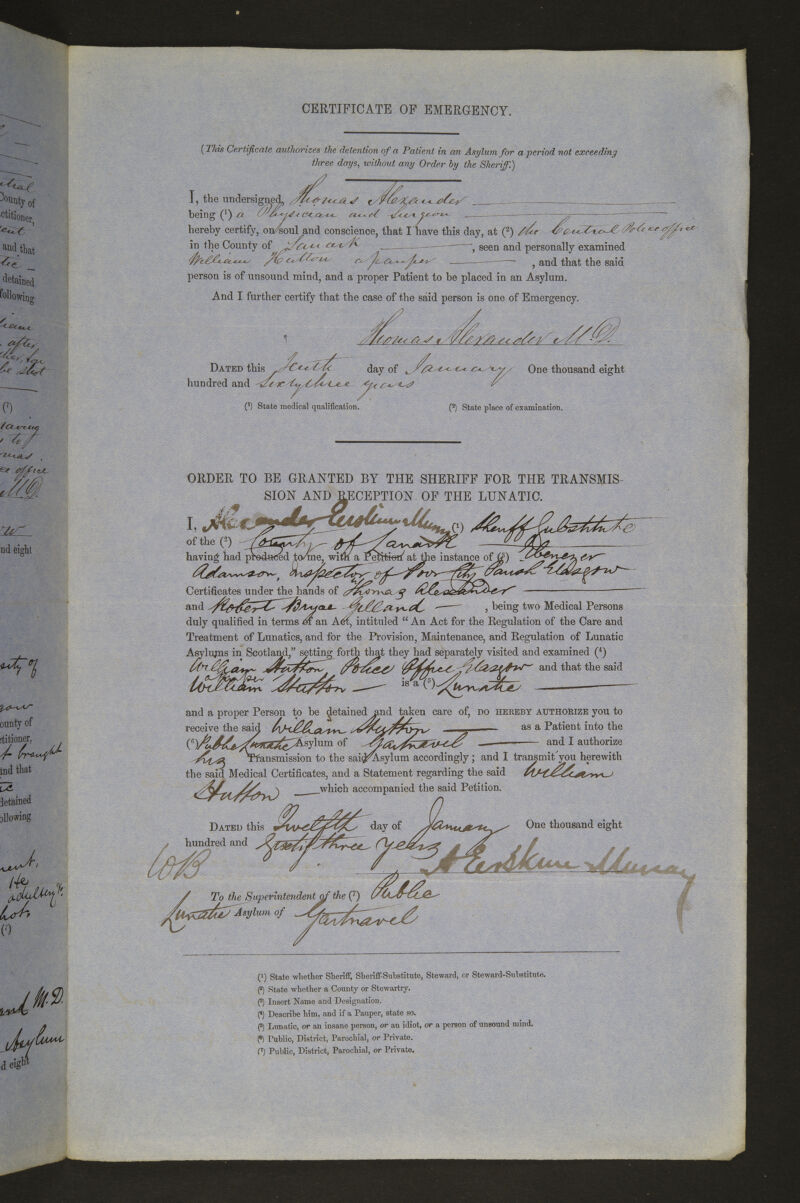 CERTIFICATE OF EMERGENCY.
(This Certificate authorizes the detention of a Patient in an Asylum for a period not exceeding
three days, without any Order by the Sheriff.)
I, the undersigned, Thomas Alexander
being (1) a Physician and Surgeon
hereby certify, on soul and conscience, that I have this day, at (2) the Central Police office
in the County of Lanark, seen and personally examined
William Hutton a pauper, and that the said
person is of unsound mind, and a proper Patient to be placed in an Asylum.
And I further certify that the case of the said person is one of Emergency.
Thomas Alexander M.D.
DATED this Tenth day of January One thousand eight
hundred and Sixtythree years
(1) State medical qualification. (2) State place of examination.
ORDER TO BE GRANTED BY THE SHERIFF FOR THE TRANSMIS-
SION AND RECEPTION OF THE LUNATIC.
I, Alexander Erskine Murray (1) Sheriff Substitute
of the (2) County of Lanark
having had produced to me, with a Petition at the instance of (3) Ebenezer
Adamson, Inspector of Poor City Parish Glasgow
Certificates under the hands of Thomas Alexander
and Robert Bryce Gilland, being two Medical Persons
duly qualified in terms of an Act, intituled "An Act for the Regulation of the Care and
Treatment of Lunatics, and for the Provision, Maintenance, and Regulation of Lunatic
Asylums in Scotland," setting forth that they had separately visited and examined (4)
William Hutton Police Office Glasgow and that the said
a pauper
William Hutton is a (5) Lunatic
and a proper Person to be detained and taken care of, DO HEREBY AUTHORIZE you to
receive the said William Hutton as a Patient into the
(6) Public Lunatic Asylum of Gartnavel and I authorize
his Transmission to the said Asylum accordingly; and I transmit you herewith
the said Medical Certificates, and a Statement regarding the said William
Hutton which accompanied the said Petition.
DATED this Twelfth day of January One thousand eight
hundred and Sixty three years
WB A Erskine Murray
To the Superintendent of the (7) Public
Lunatic Asylum of Gartnavel
(1) State whether Sheriff, Sheriff-Substitute, Steward, or Steward-Substitute.
(2) State whether a County or Stewartry.
(3) Insert Name and Designation.
(4) Describe him, and if a Pauper, state so.
(5) Lunatic, or an insane person, or an idiot, or a person of unsound mind.
(6) Public, District, Parochial, or Private.
(7) Public, District, Parochial, or Private.